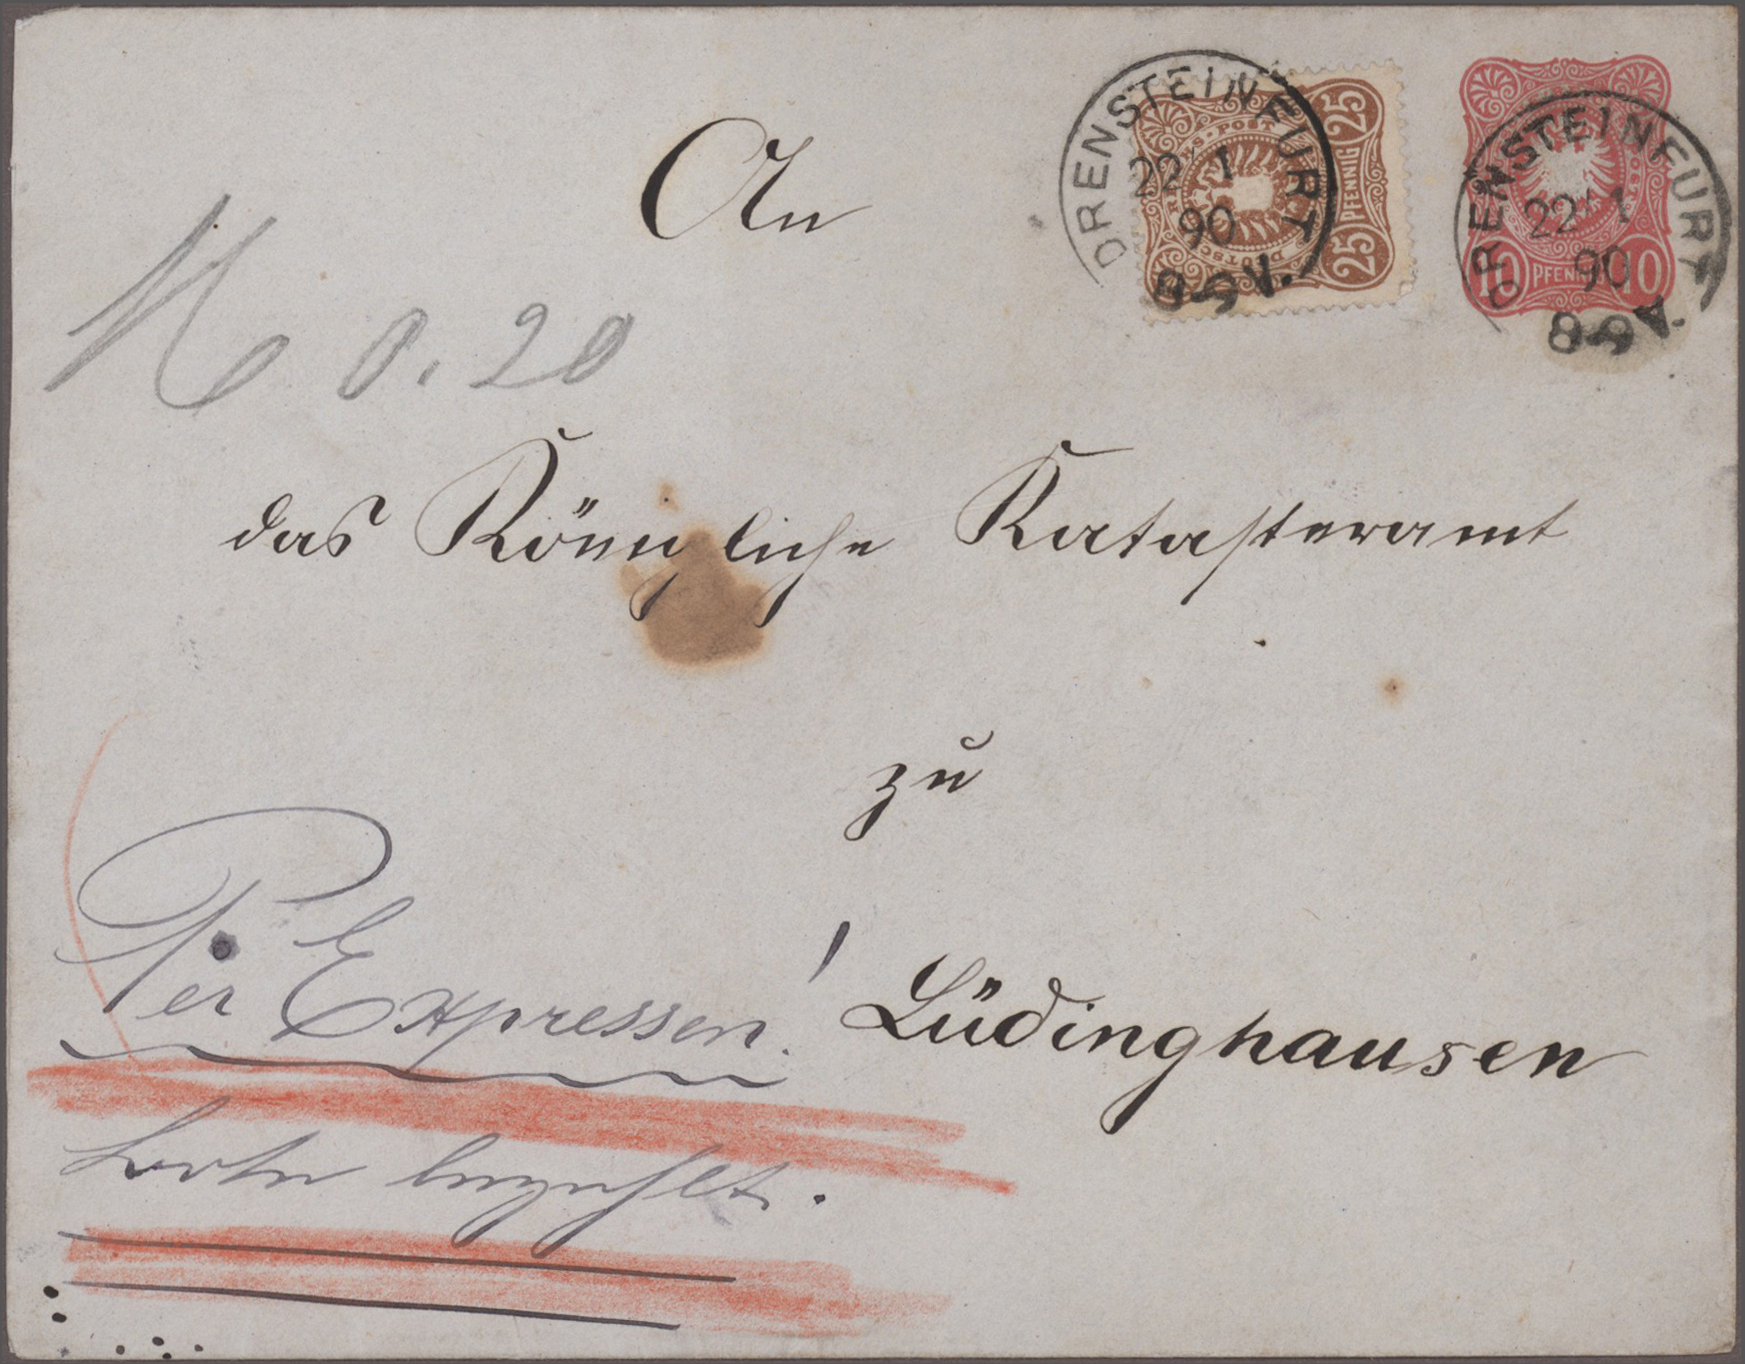 DRENSTEINFURT
22 1
90
8-9 V.
DEUTSCHE REICHS-POST
25 PFENNIG 25
DRENSTEINFURT
22 1
90
8-9 V.
10 PFENNIG 10
An
M 0.20
das Königliche Katasteramt
zu
Per Expressen.
Lüdinghausen
Bote bezahlt.